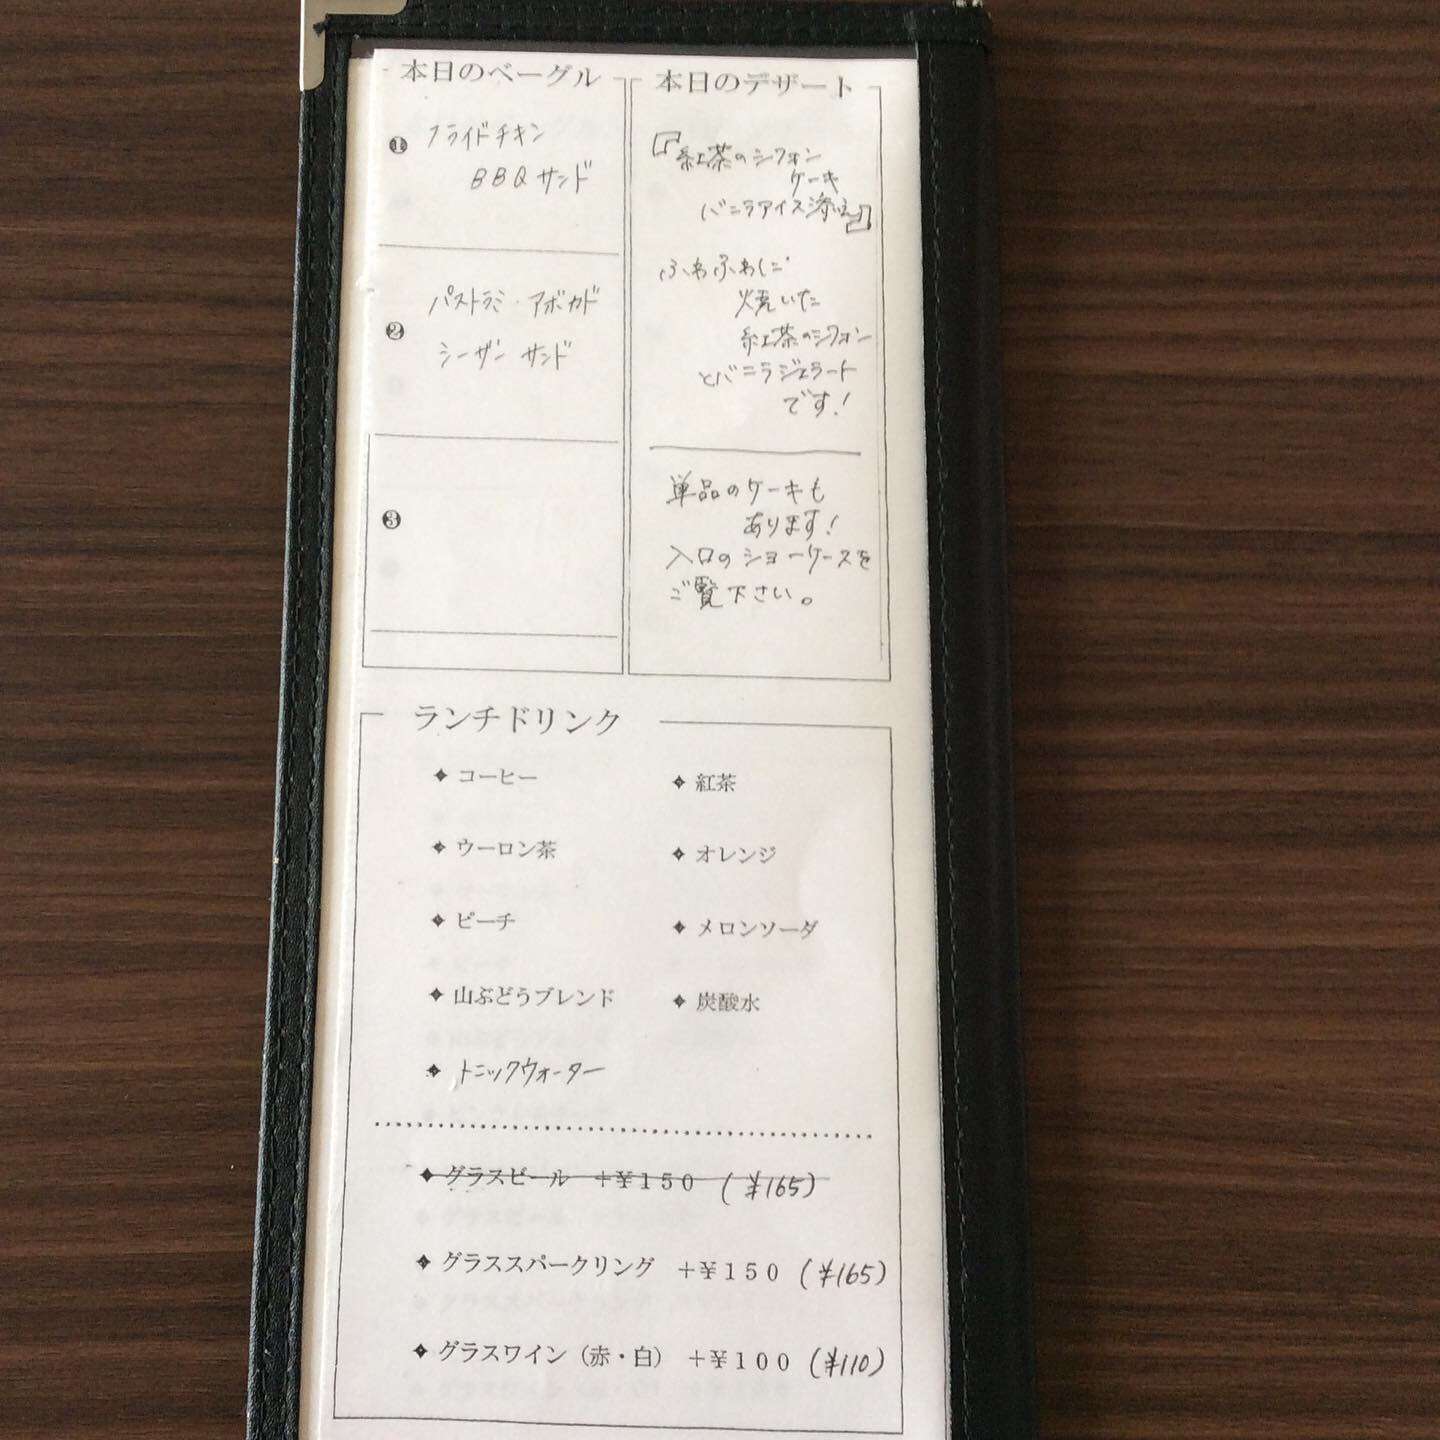 本日のベーグル
❶ フライドチキン
BBQサンド
❷ パストラミ・アボカド
シーザーサンド
❸
本日のデザート
『紅茶のシフォン
ケーキ
バニラアイス添え』
ふわふわに
焼いた
紅茶のシフォン
とバニラジェラート
です!
単品のケーキも
あります!
入口のショーケースを
ご覧下さい。
ランチドリンク
コーヒー
紅茶
ウーロン茶
オレンジ
ピーチ
メロンソーダ
山ぶどうブレンド
炭酸水
トニックウォーター
グラスビール +¥150 (¥165)
グラススパークリング +¥150 (¥165)
グラスワイン(赤・白) +¥100 (¥110)